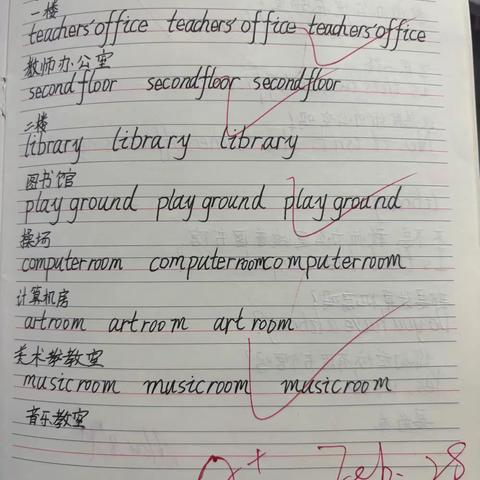 一楼
teachers' office teachers' office teachers' office
教师办公室
second floor second floor second floor
二楼
library library library
图书馆
playground playground playground
操场
computer room computer room computer room
计算机房
art room art room art room
美术教室
music room music room music room
音乐教室
A+ Feb. 28